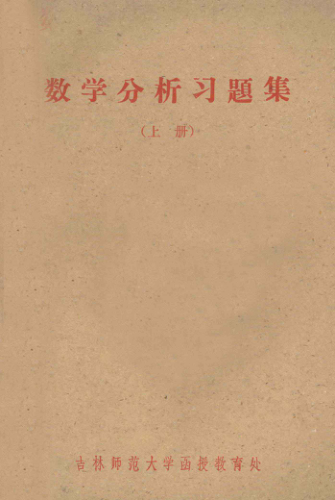 数学分析习题集
（上册）
吉林师范大学函授教育处